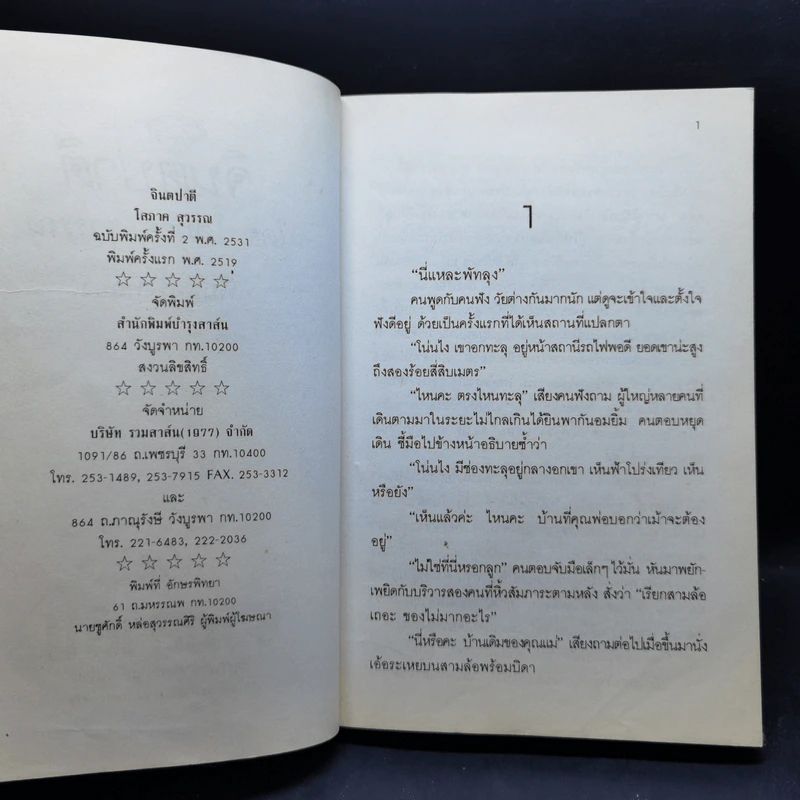 จินตปาตี
โสภาค สุวรรณ
ฉบับพิมพ์ครั้งที่ 2 พ.ศ. 2531
พิมพ์ครั้งแรก พ.ศ. 2519
☆ ☆ ☆ ☆ ☆
จัดพิมพ์
สำนักพิมพ์บำรุงสาส์น
864 วังบูรพา กท.10200
สงวนลิขสิทธิ์
☆ ☆ ☆ ☆ ☆
จัดจำหน่าย
บริษัท รวมสาส์น(1977) จำกัด
1091/86 ถ.เพชรบุรี 33 กท.10400
โทร. 253-1489, 253-7915 FAX. 253-3312
และ
864 ถ.ภาณุรังษี วังบูรพา กท.10200
โทร. 221-6483, 222-2036
☆ ☆ ☆ ☆ ☆
พิมพ์ที่ อักษรพิทยา
61 ถ.มหรรณพ กท.10200
นายชูศักดิ์ หล่อสุวรรณศิริ ผู้พิมพ์ผู้โฆษณา
1
1
“นี่แหละพัทลุง”
คนพูดกับคนฟัง วัยต่างกันมากนัก แต่ดูจะเข้าใจและตั้งใจ
ฟังดีอยู่ ด้วยเป็นครั้งแรกที่ได้เห็นสถานที่แปลกตา
“โน่นไง เขาอกทะลุ อยู่หน้าสถานีรถไฟพอดี ยอดเขาน่ะสูง
ถึงสองร้อยสี่สิบเมตร”
“ไหนคะ ตรงไหนทะลุ” เสียงคนฟังถาม ผู้ใหญ่หลายคนที่
เดินตามมาในระยะไม่ไกลเกินได้ยินพากันอมยิ้ม คนตอบหยุด
เดิน ชี้มือไปข้างหน้าอธิบายซ้ำว่า
“โน่นไง มีช่องทะลุอยู่กลางอกเขา เห็นฟ้าโปร่งเทียว เห็น
หรือยัง”
“เห็นแล้วค่ะ ไหนคะ บ้านที่คุณพ่อบอกว่าเม้าจะต้อง
อยู่”
“ไม่ใช่ที่นี่หรอกลูก” คนตอบจับมือเล็กๆ ไว้มั่น หันมาพยัก-
เพยิดกับบริวารสองคนที่หิ้วสัมภาระตามหลัง สั่งว่า “เรียกสามล้อ
เถอะ ของไม่มากอะไร”
“นี่หรือคะ บ้านเดิมของคุณแม่” เสียงถามต่อไปเมื่อขึ้นมานั่ง
เอ้อระเหยบนสามล้อพร้อมบิดา